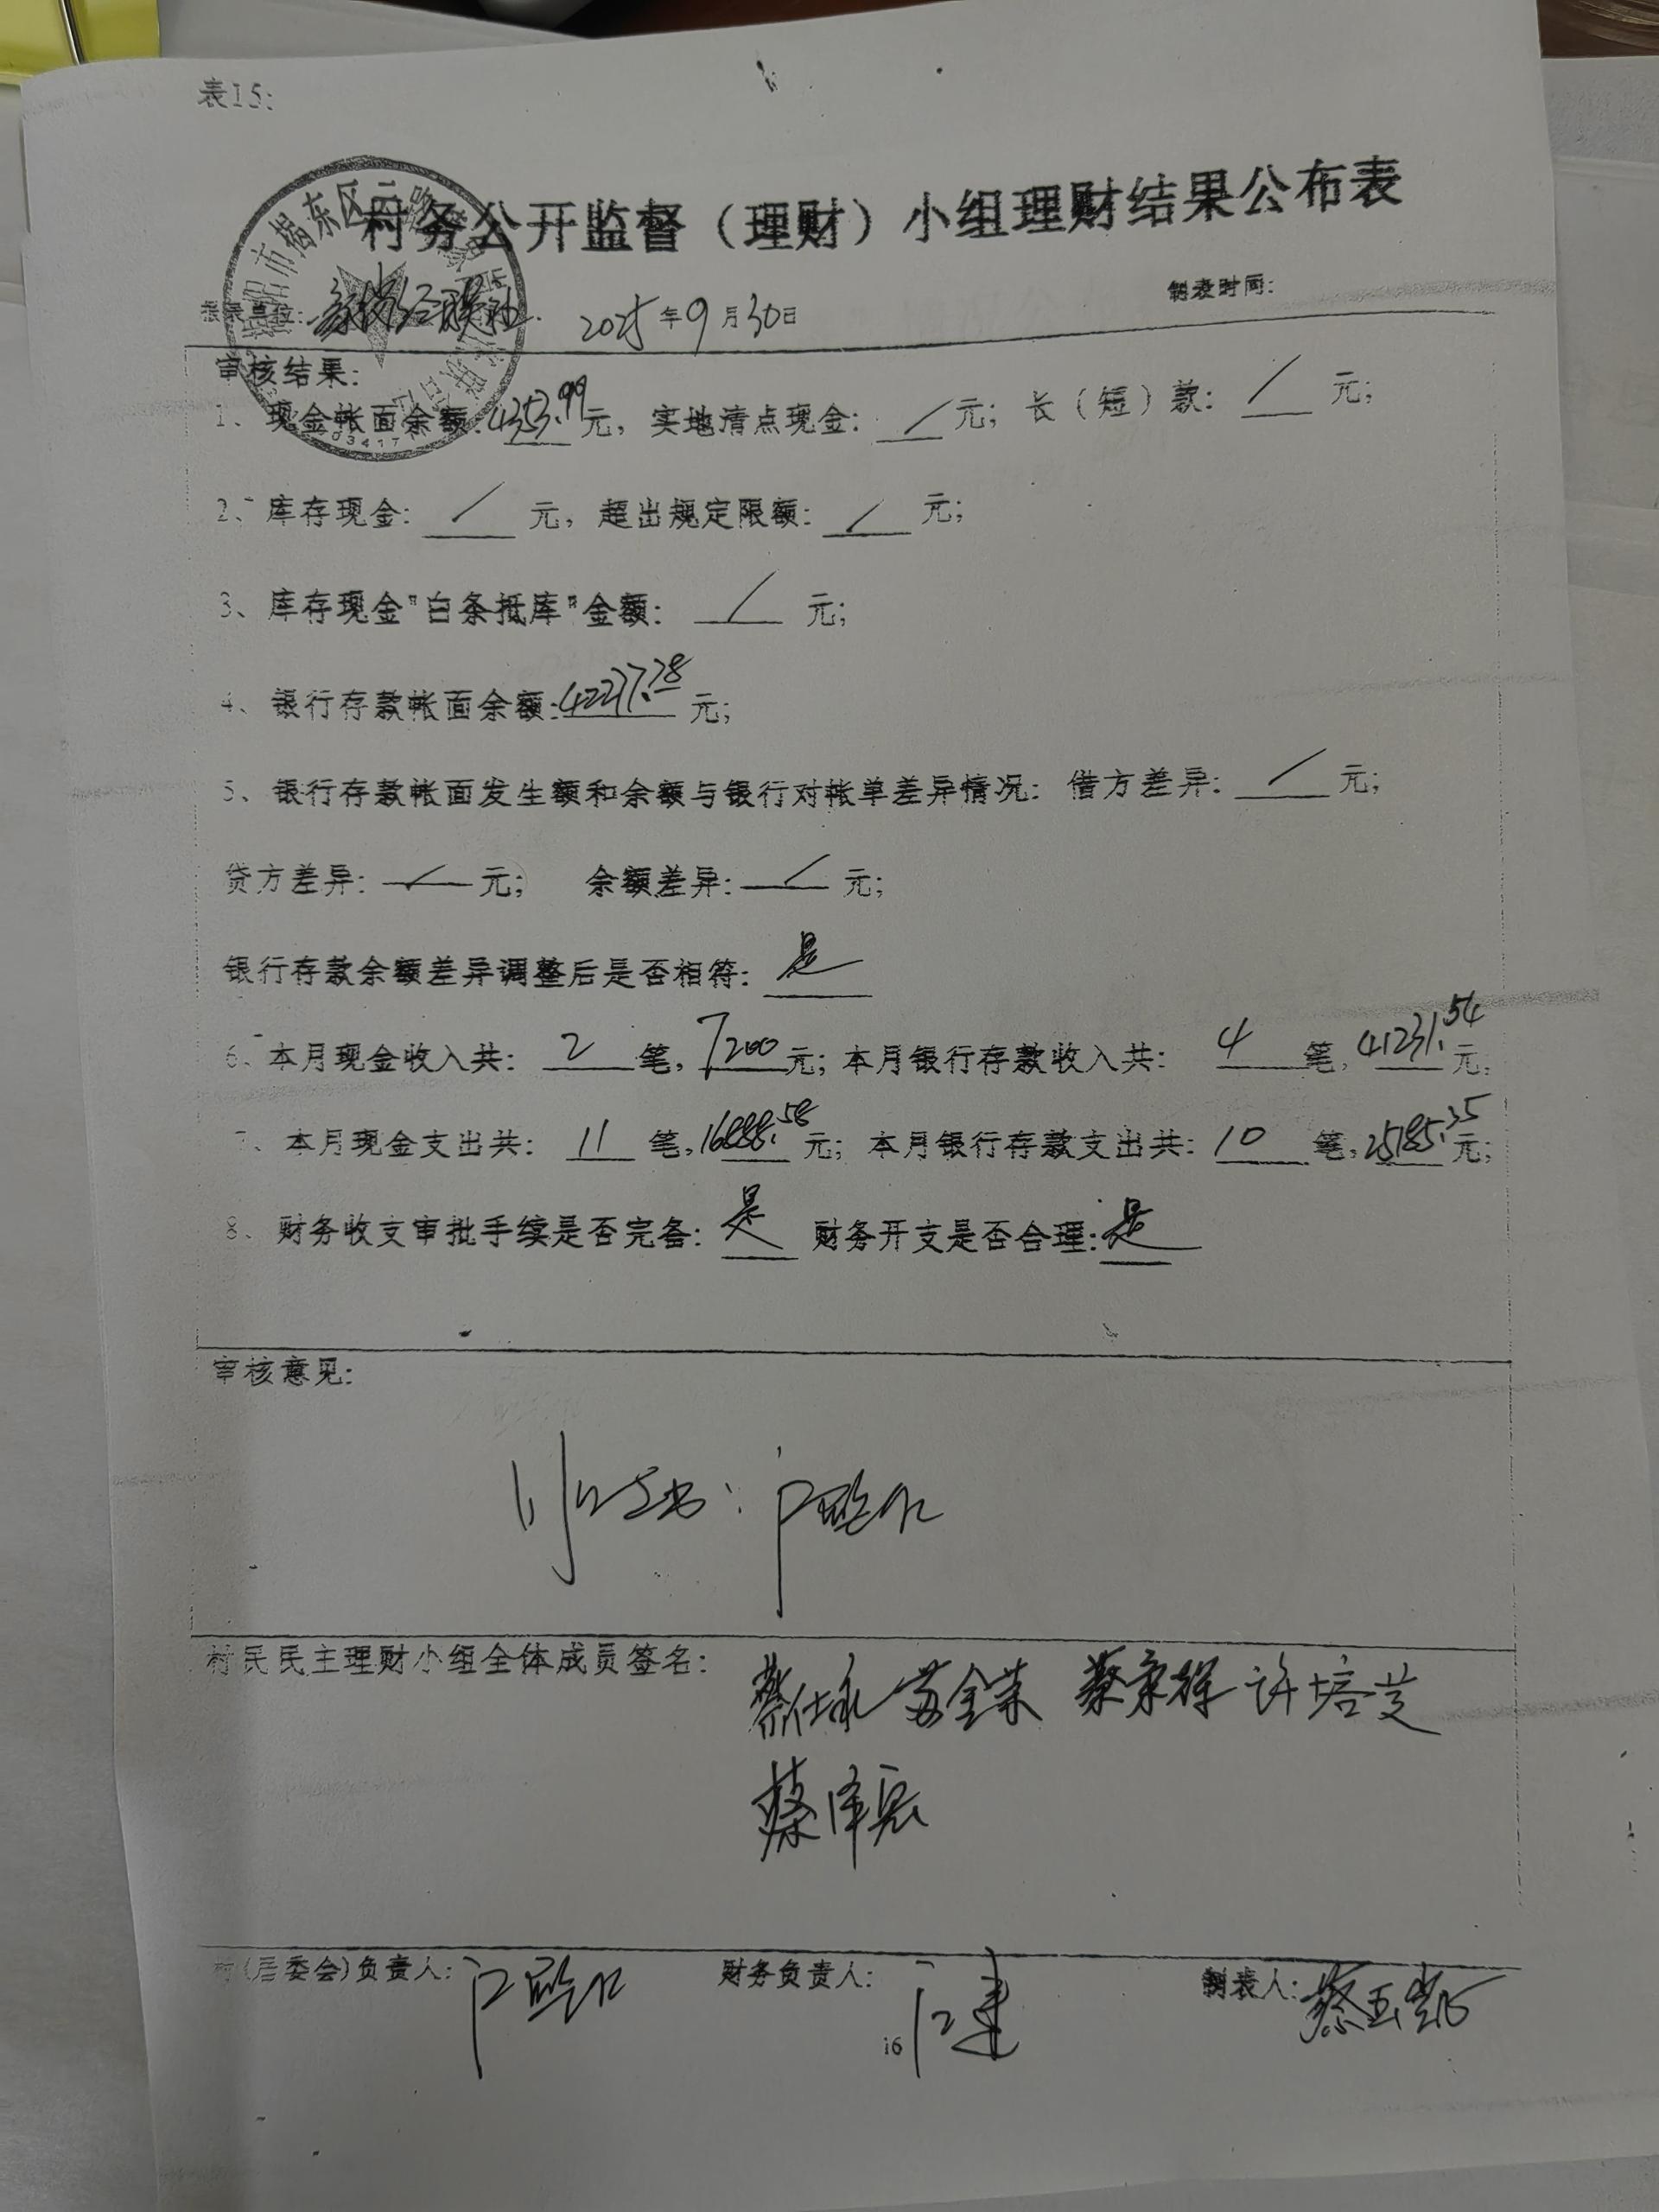 表15:
村务公开监督（理财）小组理财结果公布表
制表时间:
报表单位: 经联社 2025年9月30日
审核结果:
1、现金帐面余额:4353.99元，实地清点现金: / 元；长（短）款: / 元；
2、库存现金: / 元，超出规定限额: / 元；
3、库存现金"白条抵库"金额: / 元；
4、银行存款帐面余额:42237.78元；
5、银行存款帐面发生额和余额与银行对帐单差异情况: 借方差异: / 元；
贷方差异: / 元； 余额差异: / 元；
银行存款余额差异调整后是否相符: 是
6、本月现金收入共: 2 笔，7200元；本月银行存款收入共: 4 笔，41231.54元.
7、本月现金支出共: 11 笔，16888.58元；本月银行存款支出共: 10 笔，25185.35元；
8、财务收支审批手续是否完备: 是 财务开支是否合理:是
审核意见:
村民民主理财小组全体成员签名:
蔡仕永 苏金荣 蔡 辉 许培芝
蔡泽
村(居委会)负责人: 财务负责人: 制表人: 蔡玉
16